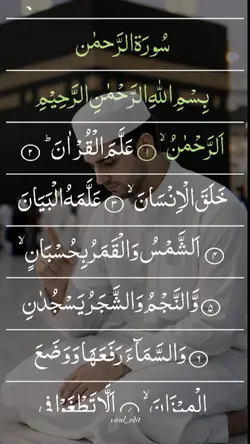 سُورَةُ الرَّحمٰن
بِسْمِ اللهِ الرَّحْمٰنِ الرَّحِيْمِ
اَلرَّحْمٰنُ ۙ ۱ عَلَّمَ الْقُرْاٰنَ ؕ ۲
خَلَقَ الْاِنْسَانَ ۙ ۳ عَلَّمَهُ الْبَيَانَ
۴ اَلشَّمْسُ وَالْقَمَرُ بِحُسْبَانٍ ۙ
۵ وَّالنَّجْمُ وَالشَّجَرُ يَسْجُدٰنِ
۶ وَالسَّمَآءَ رَفَعَهَا وَوَضَعَ
الْمِيْزَانَ ۙ اَلَّا تَطْغَوْا فِى
viral_edit